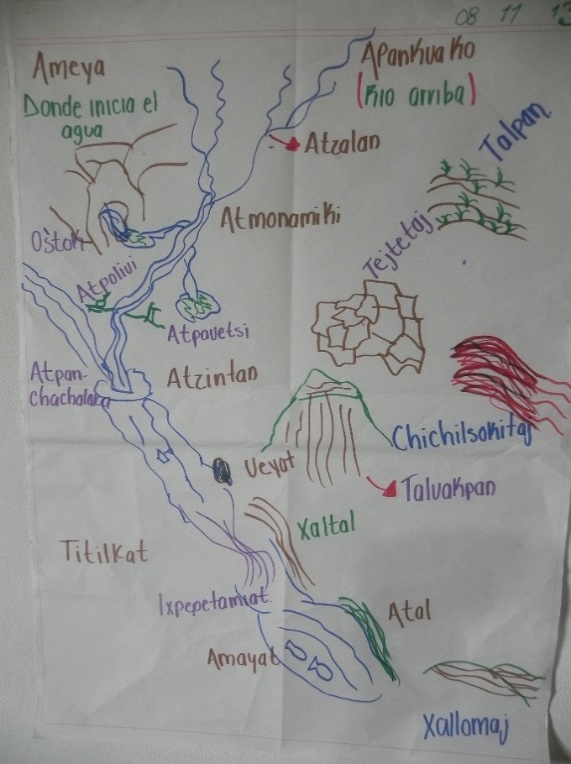 08 11 13
Ameya
Donde inicia el
agua
Apankuako
(Rio arriba)
Atzalan
Talpan
Oštok
Atmonamiki
Tejtetaj
Atpolivi
Atpauetsi
Atpan-
chachalaka
Atzintan
Chichilsokitaj
Ueyat
Taluakpan
Xaltal
Titilkat
Ixpepetamkat
Atol
Amayat
Xallomaj